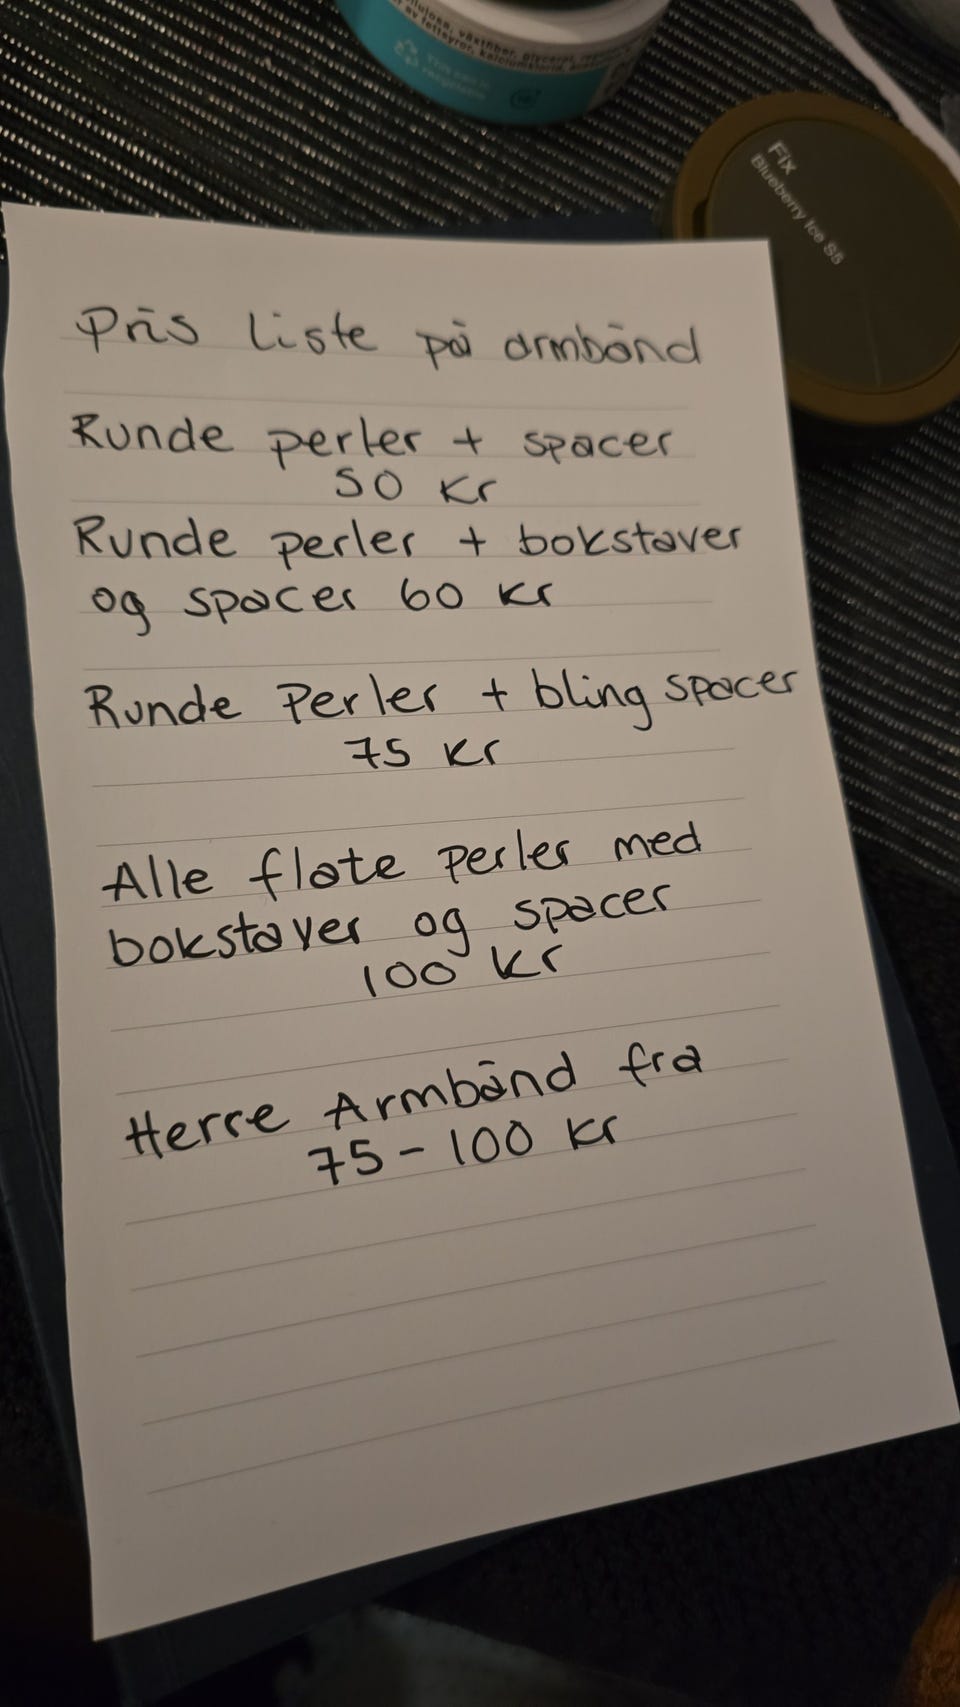 This can is
recyclable
Fix
Blueberry Ice S5
Pris liste på armbånd
Runde perler + spacer
50 Kr
Runde perler + bokstaver
og spacer 60 Kr
Runde Perler + bling spacer
75 Kr
Alle flate perler med
bokstaver og spacer
100 Kr
Herre Armbånd fra
75 - 100 Kr